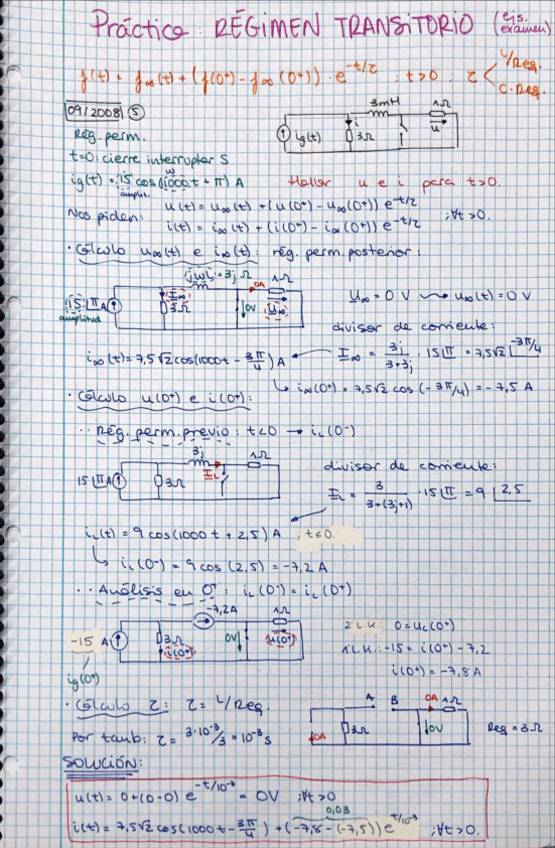 Práctica: RÉGIMEN TRANSITORIO (ejs. examen)
f(t) = f∞(t) + (f(0+) - f∞(0+)) · e^-t/τ ; t>0 ; τ < L/Req. C·Req.
09/2008 (S)
3mH 1Ω
ig(t) i 3Ω u
Rég. perm.
t=0: cierre interruptor S
ig(t) = 15 cos(1000t + π) A
w
amplit.
Hallar u e i para t>0.
Nos piden: u(t) = u∞(t) + (u(0+) - u∞(0+)) e^-t/τ
i(t) = i∞(t) + (i(0+) - i∞(0+)) e^-t/τ ; ∀t>0.
· Cálculo u∞(t) e i∞(t): rég. perm. posterior:
jwL = 3j Ω 0A 1Ω
15 |π A I∞ 3Ω 0V U∞
amplitud
U∞ = 0 V ⇝ u∞(t) = 0 V
divisor de corriente:
i∞(t) = 7,5√2 cos(1000t - 3π/4) A ← I∞ = 3j/(3+3j) · 15|π = 7,5√2 |-3π/4
↳ i∞(0+) = 7,5√2 cos(-3π/4) = -7,5 A
· Cálculo u(0+) e i(0+):
·· Rég. perm. previo: t<0 → iL(0-)
3j 1Ω
15 |π A 3Ω IL
divisor de corriente:
IL = 3/(3+(3j+1)) · 15|π = 9 |2,5
iL(t) = 9 cos(1000t + 2,5) A ; t≤0.
↳ iL(0-) = 9 cos(2,5) = -7,2 A
·· Análisis en 0+: iL(0-) = iL(0+)
-7,2A 1Ω
-15 A 3Ω i(0+) 0V u(0+)
ig(0+)
2ª L.K.: 0 = u(0+)
1ª L.K.: -15 = i(0+) - 7,2
i(0+) = -7,8 A
· Cálculo τ: τ = L/Req.
A B 0A 1Ω
0A 3Ω 0V Req = 3Ω
Por tanto: τ = 3·10^-3/3 = 10^-3 s
SOLUCIÓN:
u(t) = 0 + (0-0) e^-t/10^-3 = 0V ; ∀t>0
0,03
i(t) = 7,5√2 cos(1000t - 3π/4) + (-7,8 - (-7,5)) e^-t/10^-3 ; ∀t>0.